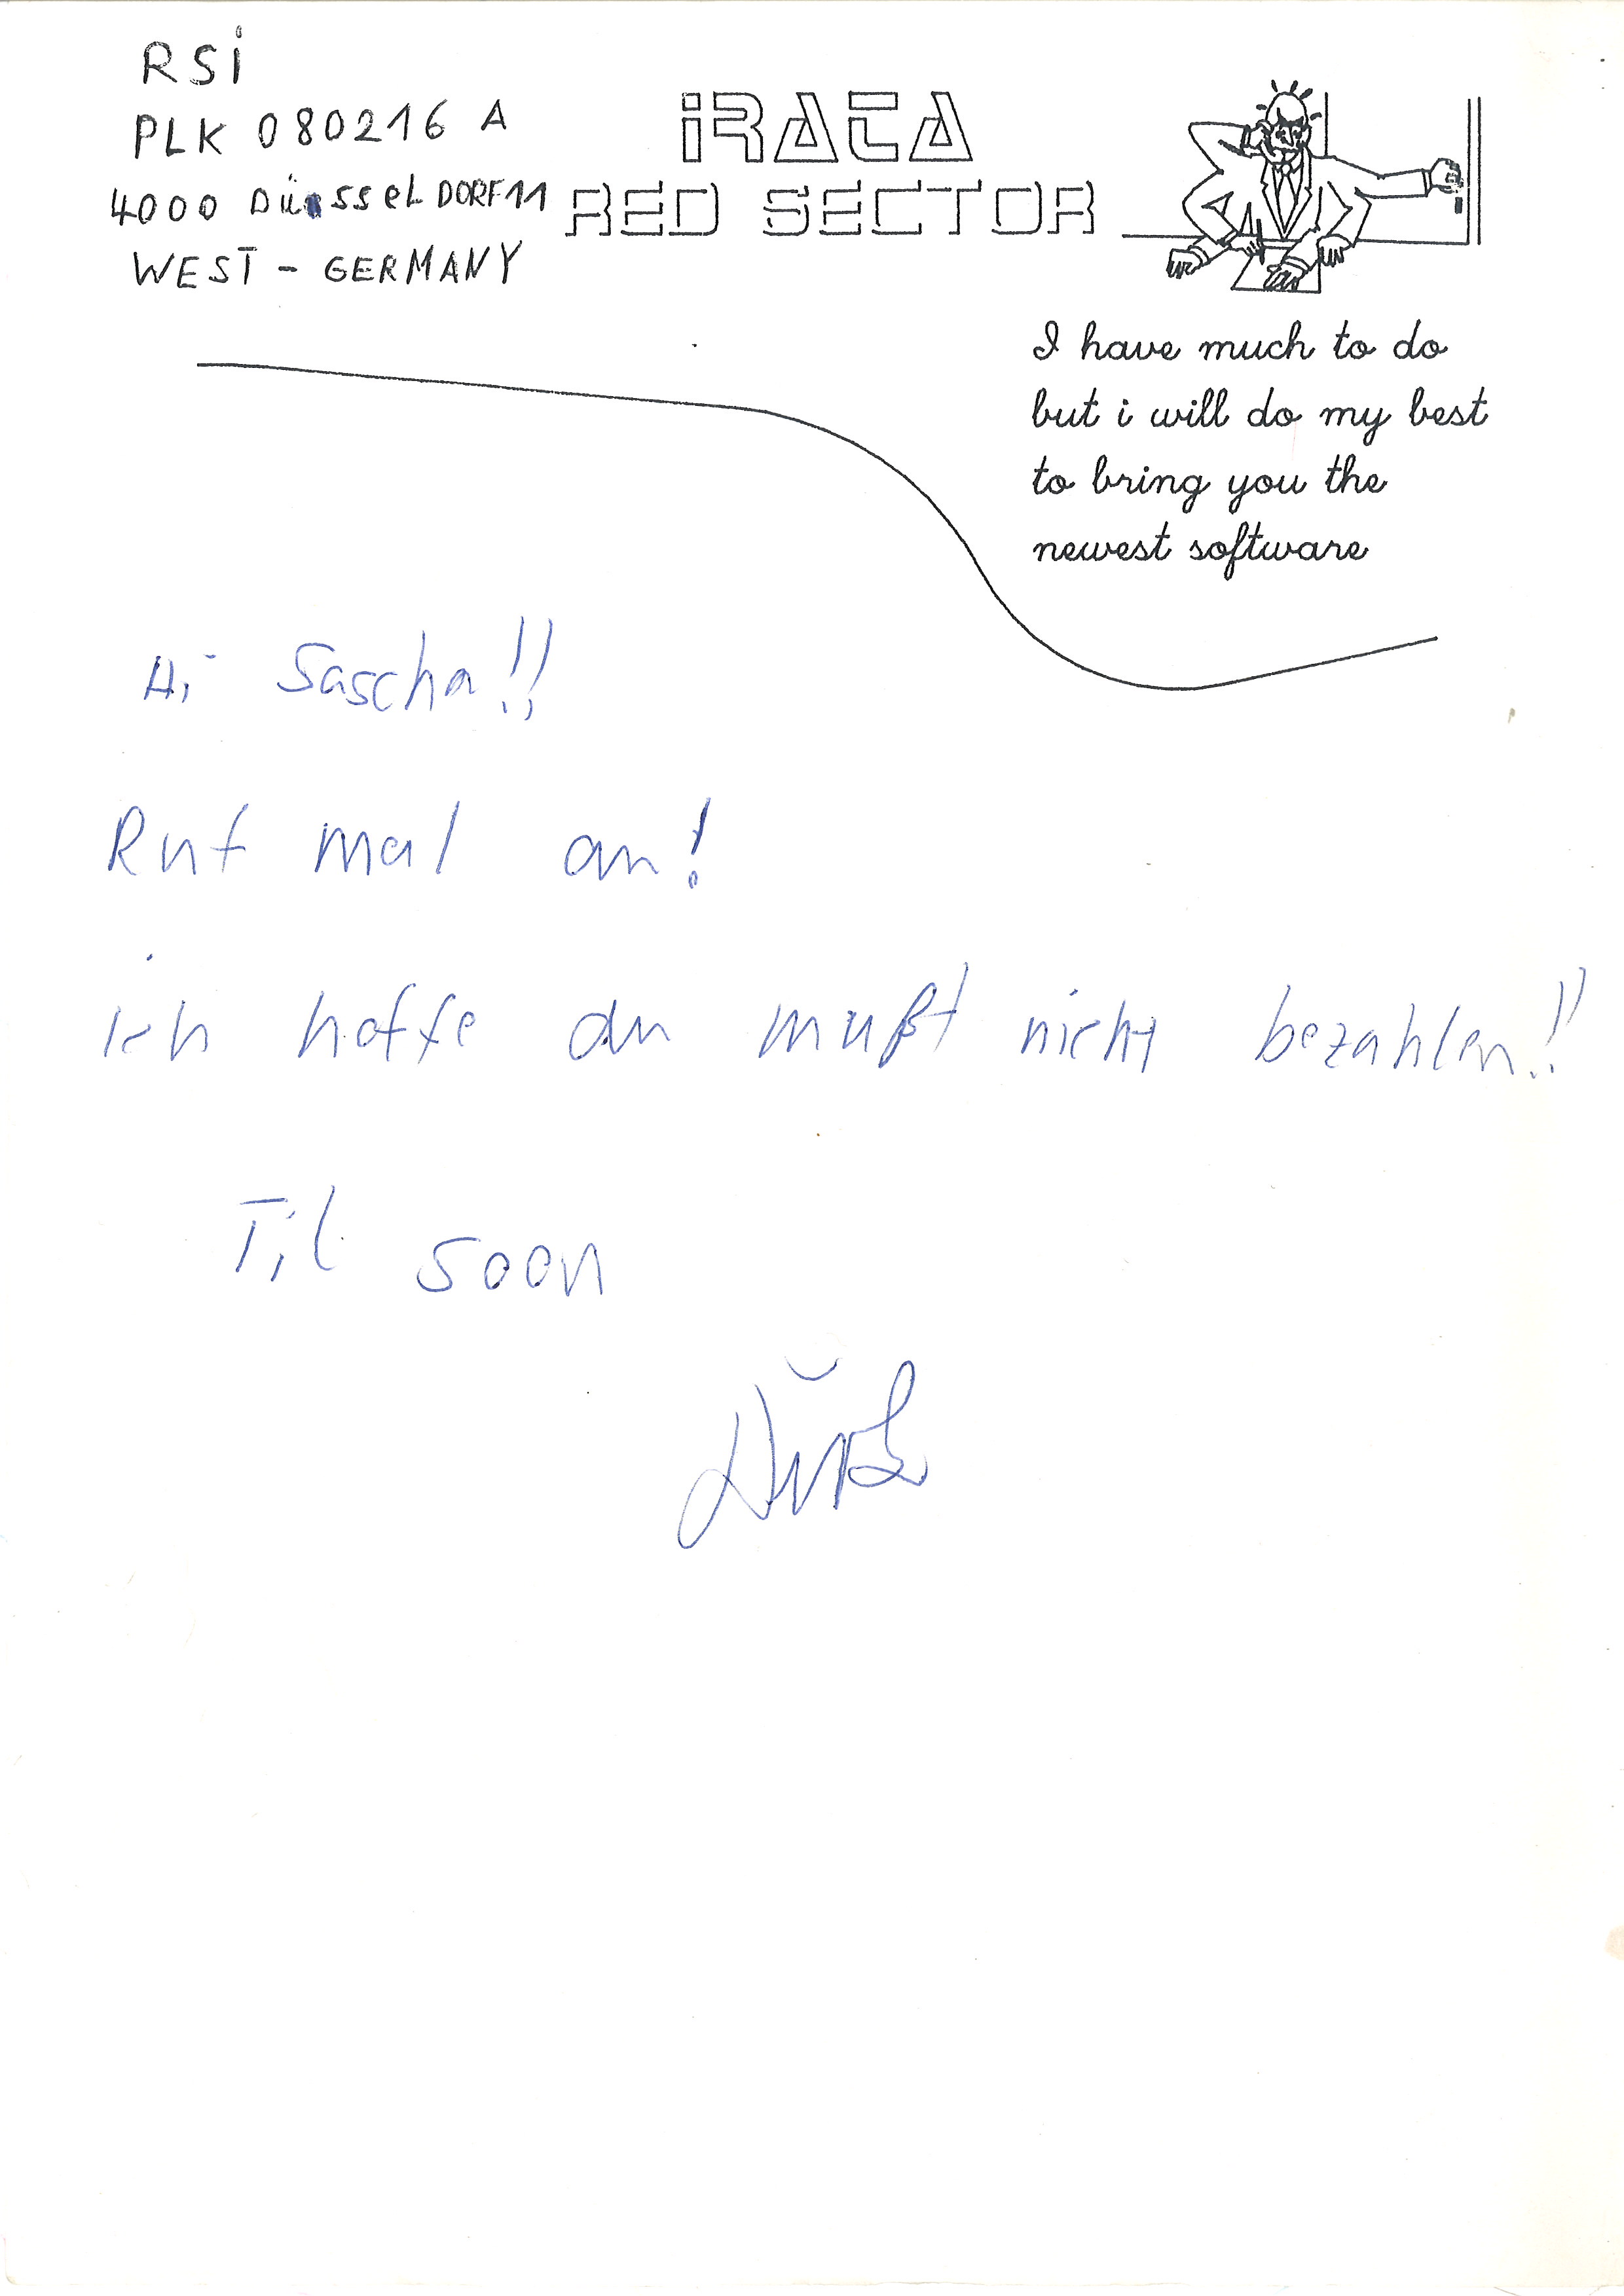 RSi
PLK 080216 A
4000 DüsselDORF 11
WEST - GERMANY
iRATA
RED SECTOR
I have much to do
but i will do my best
to bring you the
newest software
Hi Sascha!!
Ruf mal an!
ich hoffe du mußt nicht bezahlen!!
Til soon
Dirk